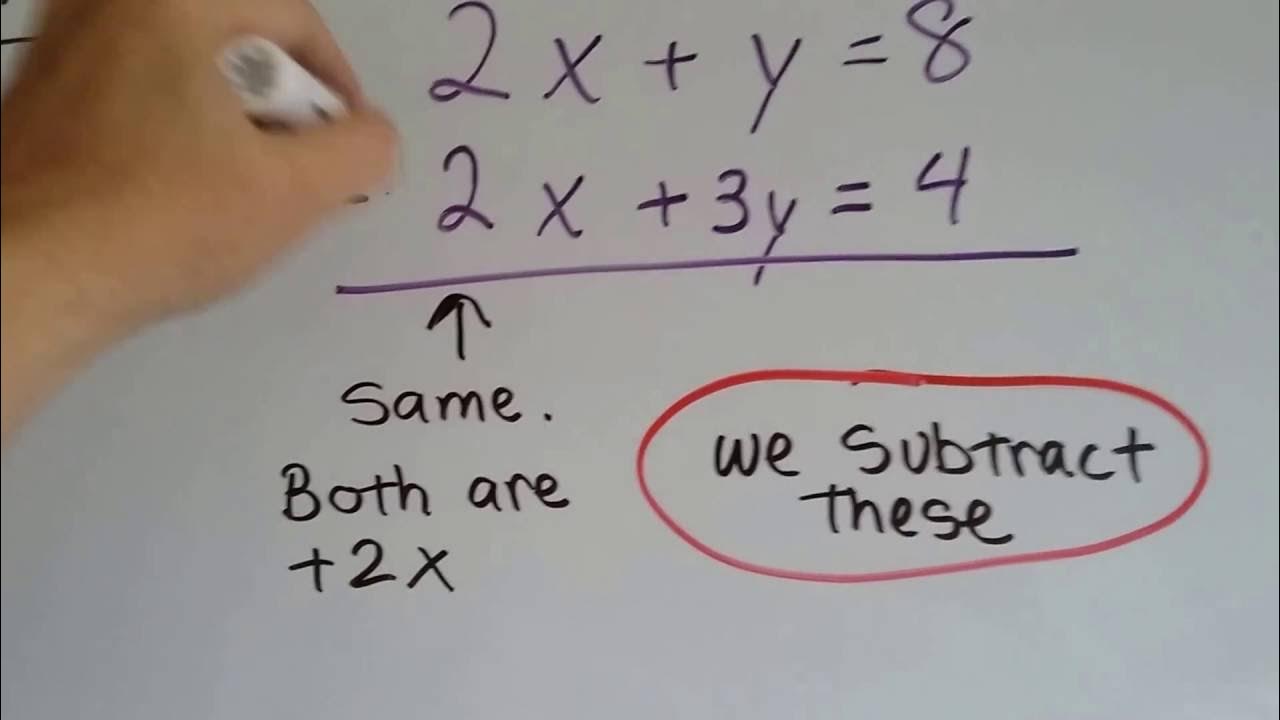 2x + y = 8
- 2x + 3y = 4
↑
Same.
Both are
+2x
we subtract
these